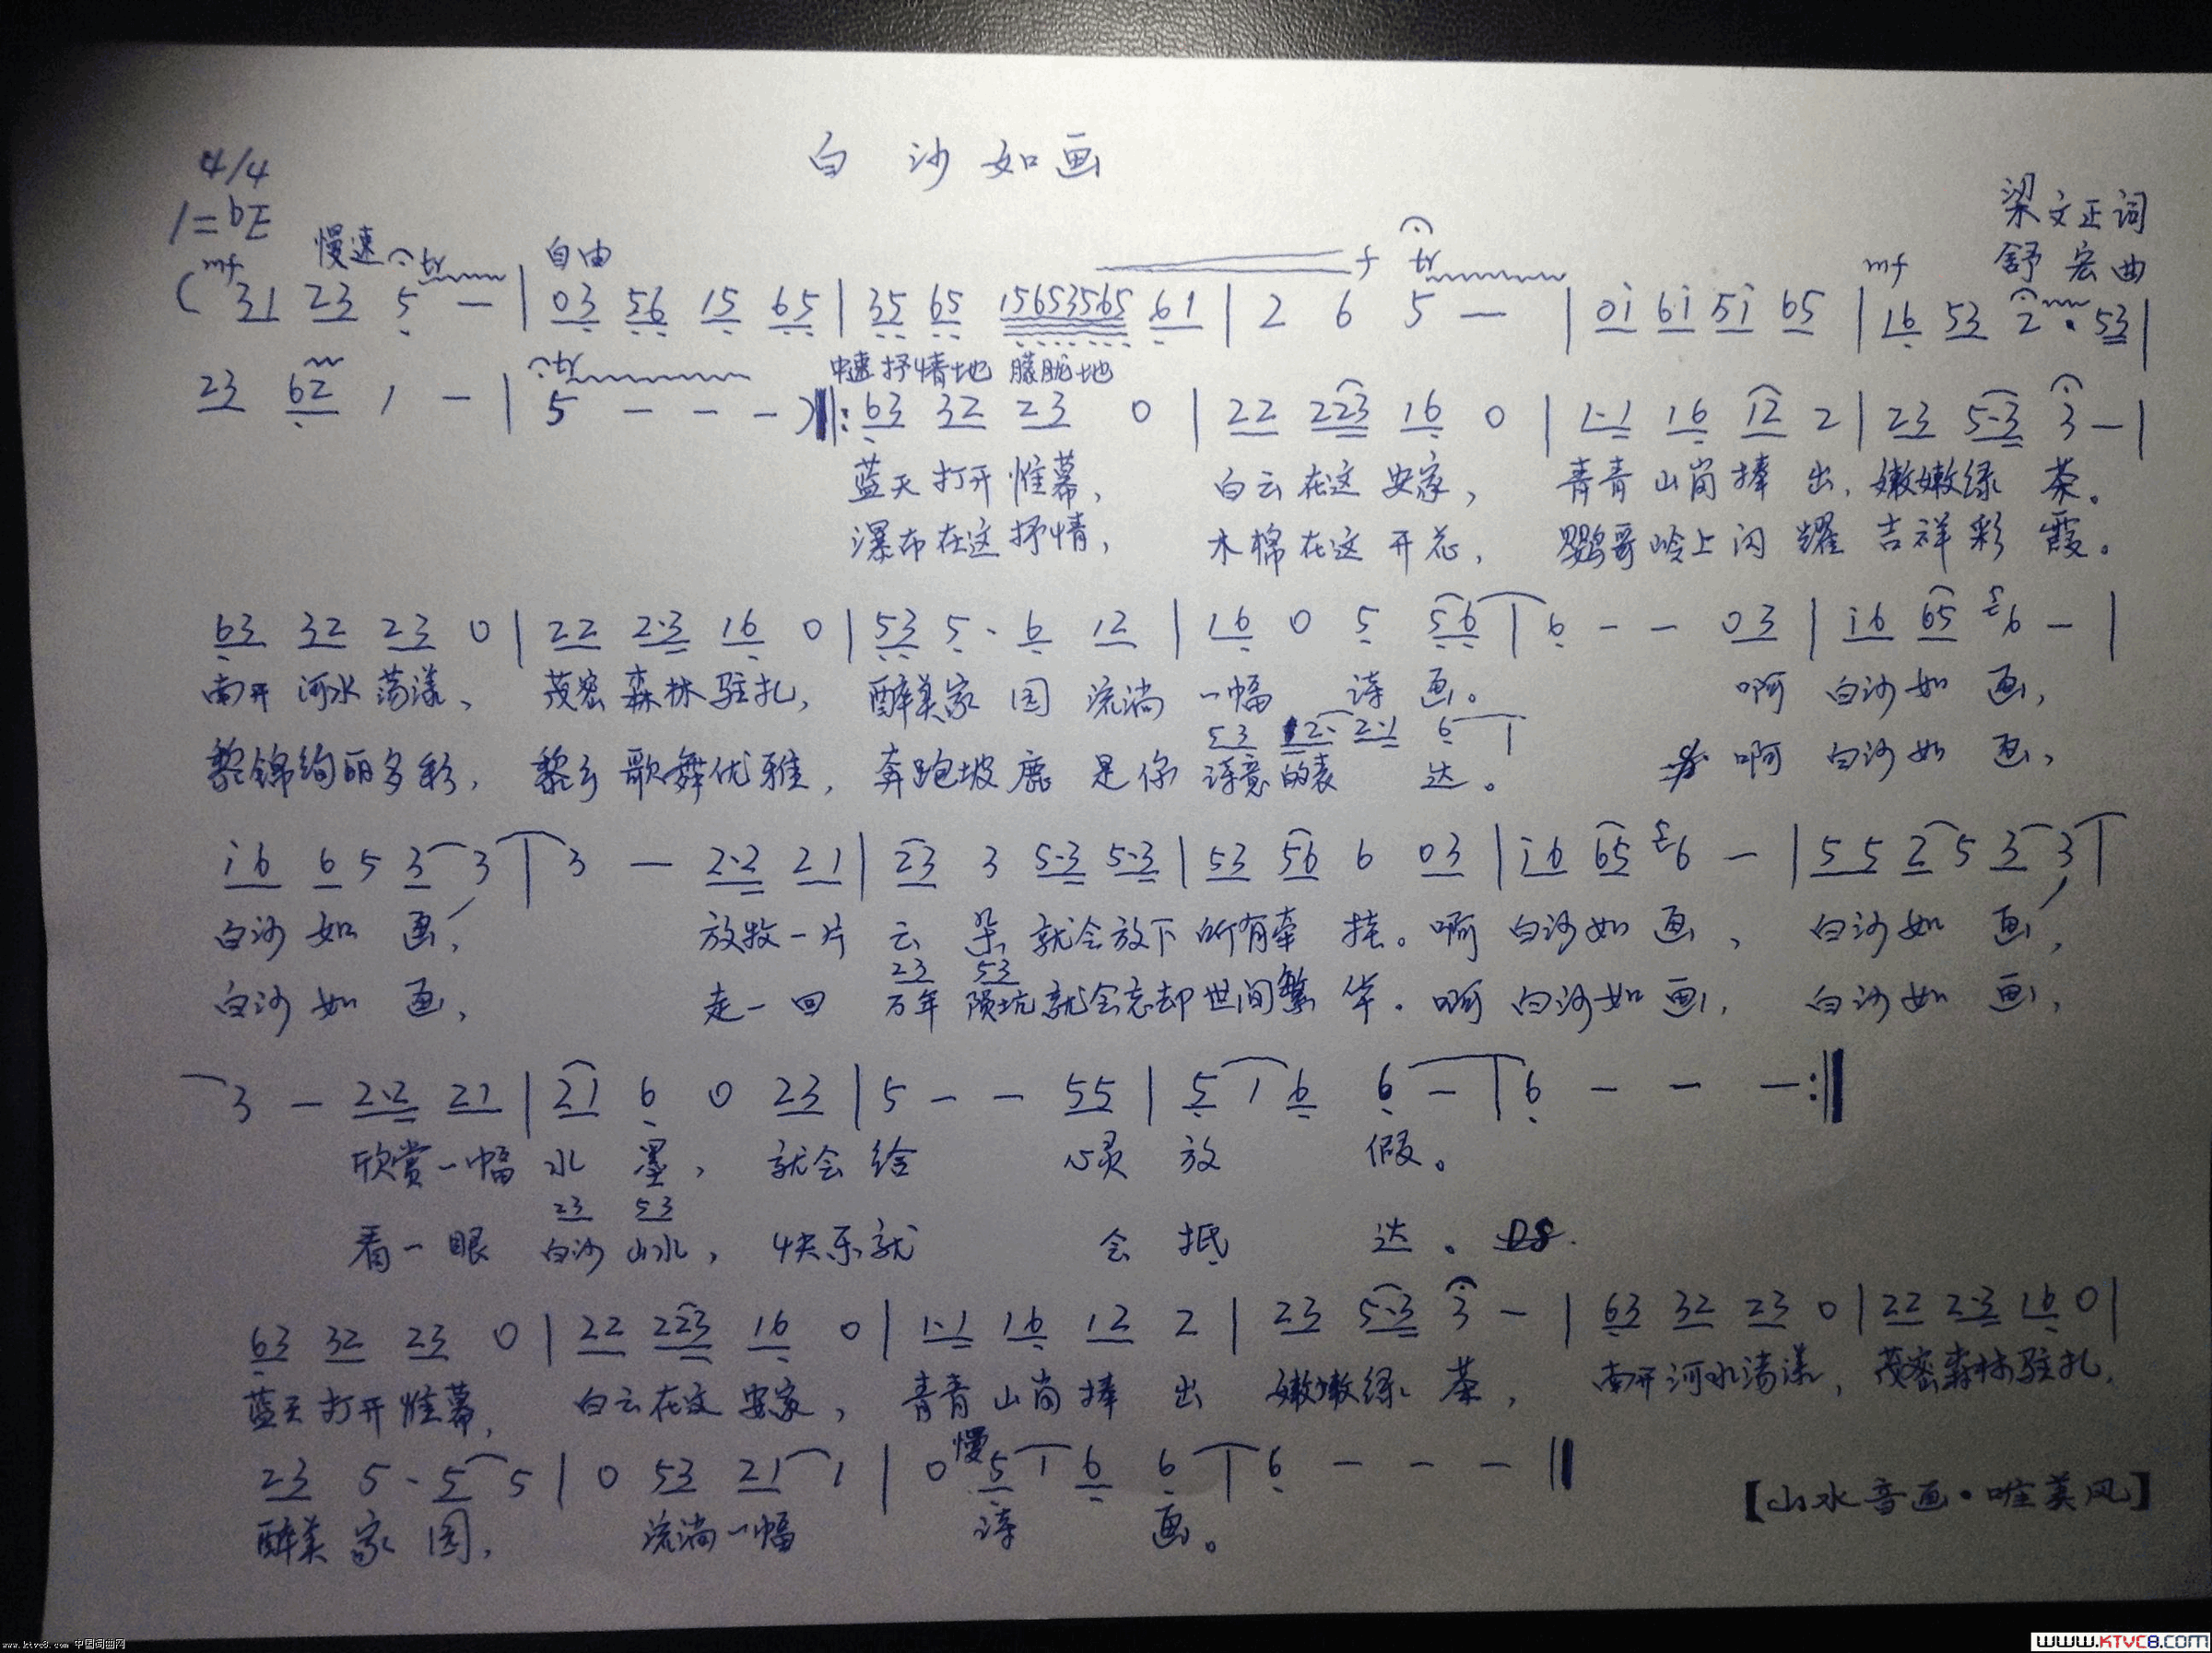 白沙如画
4/4
1=bE
梁文正词
舒宏曲
慢速 tr 自由 f tr mf
(mf 31 23 5 - | 03 56 15 65 | 35 65 15653565 61 | 2 6 5 - | 0i 6i 5i 65 | 16 53 2 · 53 |
tr 中速抒情地 朦胧地
23 62 1 - | 5 - - - )‖: 63 32 23 0 | 22 223 16 0 | 1·1 16 12 2 | 23 5·3 3 - |
蓝天打开惟幕, 白云在这安家, 青青山岗捧出, 嫩嫩绿茶。
瀑布在这抒情, 木棉在这开花, 鹦哥岭上闪耀吉祥彩霞。
63 32 23 0 | 22 2·3 16 0 | 53 5 · 6 12 | 16 0 5 56 | 6 - - 03 | i6 65 56 - |
南开河水荡漾、 茂密森林驻扎, 醉美家园流淌一幅诗画。 啊白沙如画,
53 12· 2·1 6
黎锦绚丽多彩, 黎乡歌舞优雅, 奔跑坡鹿是你诗意的表达。 啊白沙如画,
i6 6 5 3 3 | 3 - 2·2 21 | 23 3 5·3 5·3 | 53 56 6 03 | i6 65 56 - | 55 2 5 3 3 |
白沙如画, 放牧一片云朵就会放下所有牵挂。啊白沙如画、 白沙如画,
23 53
白沙如画, 走一回万年陨坑就会忘却世间繁华。啊白沙如画, 白沙如画,
3 - 2·2 21 | 21 6 0 23 | 5 - - 55 | 5 1 6 6 - | 6 - - - :‖
欣赏一幅水墨, 就会给心灵放假。
23 53
看一眼白沙山水, 快乐就会抵达。 DS.
63 32 23 0 | 22 223 16 0 | 1·1 16 12 2 | 23 5·3 3 - | 63 32 23 0 | 22 2·3 16 0 |
蓝天打开惟幕, 白云在这安家, 青青山岗捧出 嫩嫩绿茶, 南开河水荡漾, 茂密森林驻扎,
慢
23 5 · 5 5 | 0 53 21 1 | 0 5 1 6 6 | 6 - - - ‖
醉美家园, 流淌一幅诗画。
【山水音画·唯美风】
www.ktvc8.com 中国词曲网
www.KTVC8.com